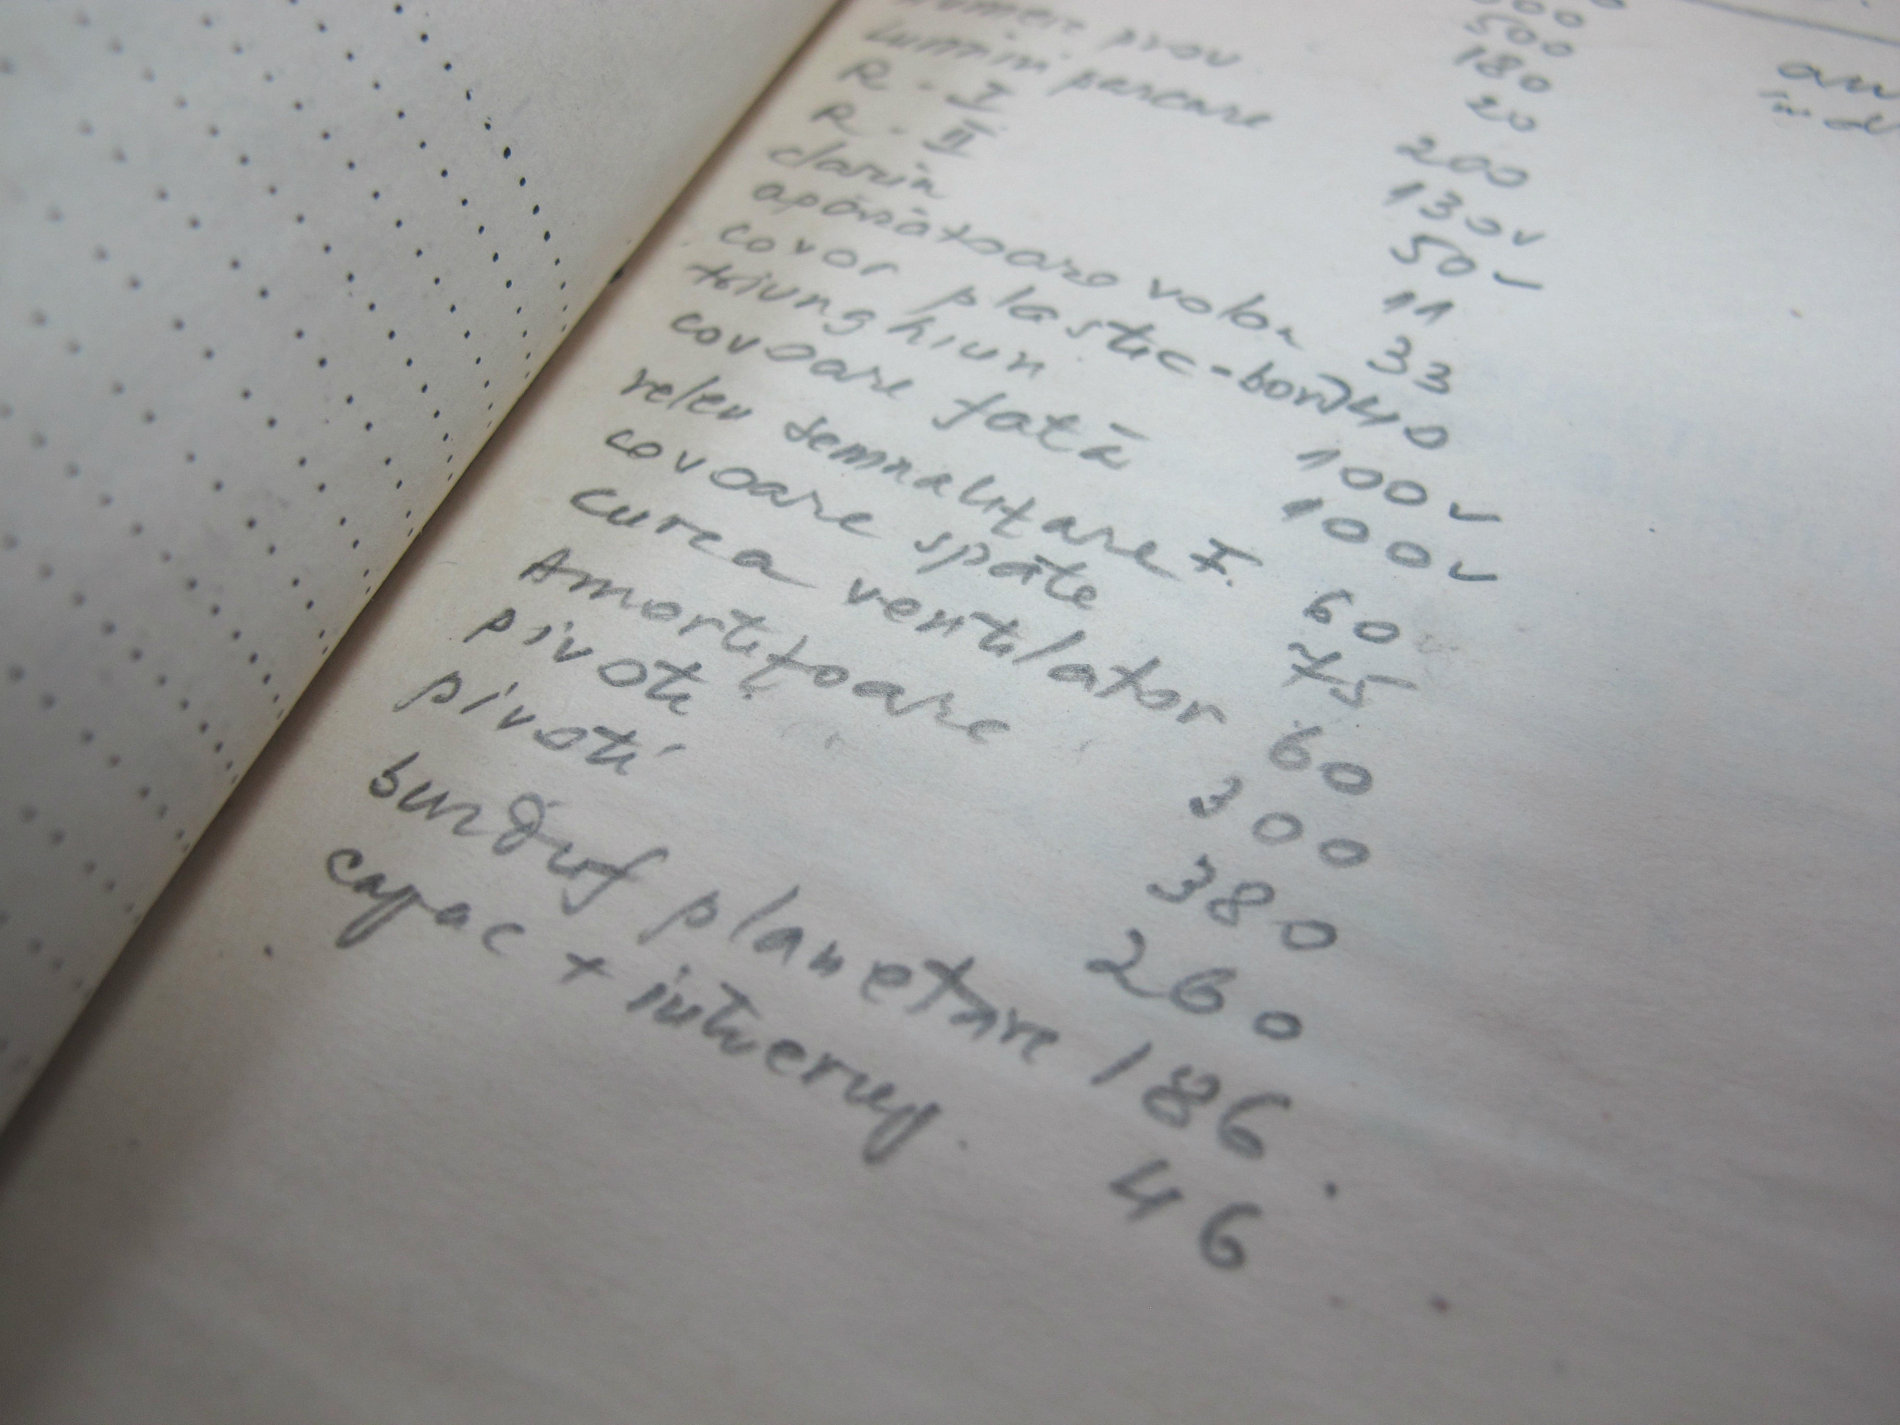 500
180
numere prov 20
lumini parcare 200
R - I 130 v
R - II 50 v
claxin 11
apărătoare volan 33
covor plastic - bord 40
triunghiuri 100 v
covoare față 100 v
releu semnalizare F. 60
covoare spate 75
curea ventilator 60
Amortizoare 300
pivoti 380
pivoti 260
burduf planetare 186
capac + intverup. 46